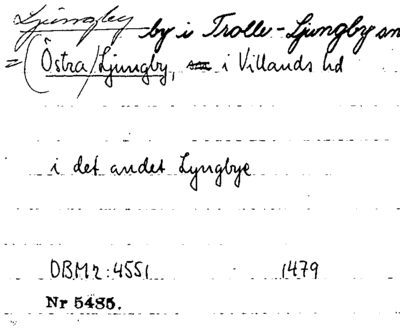 Ljungby by i Trolle-Ljungby sn
= (Östra/Ljungby, sn i Villands hd
i det andet Lyngbye
DBM 2:4551 1479
Nr 5485.